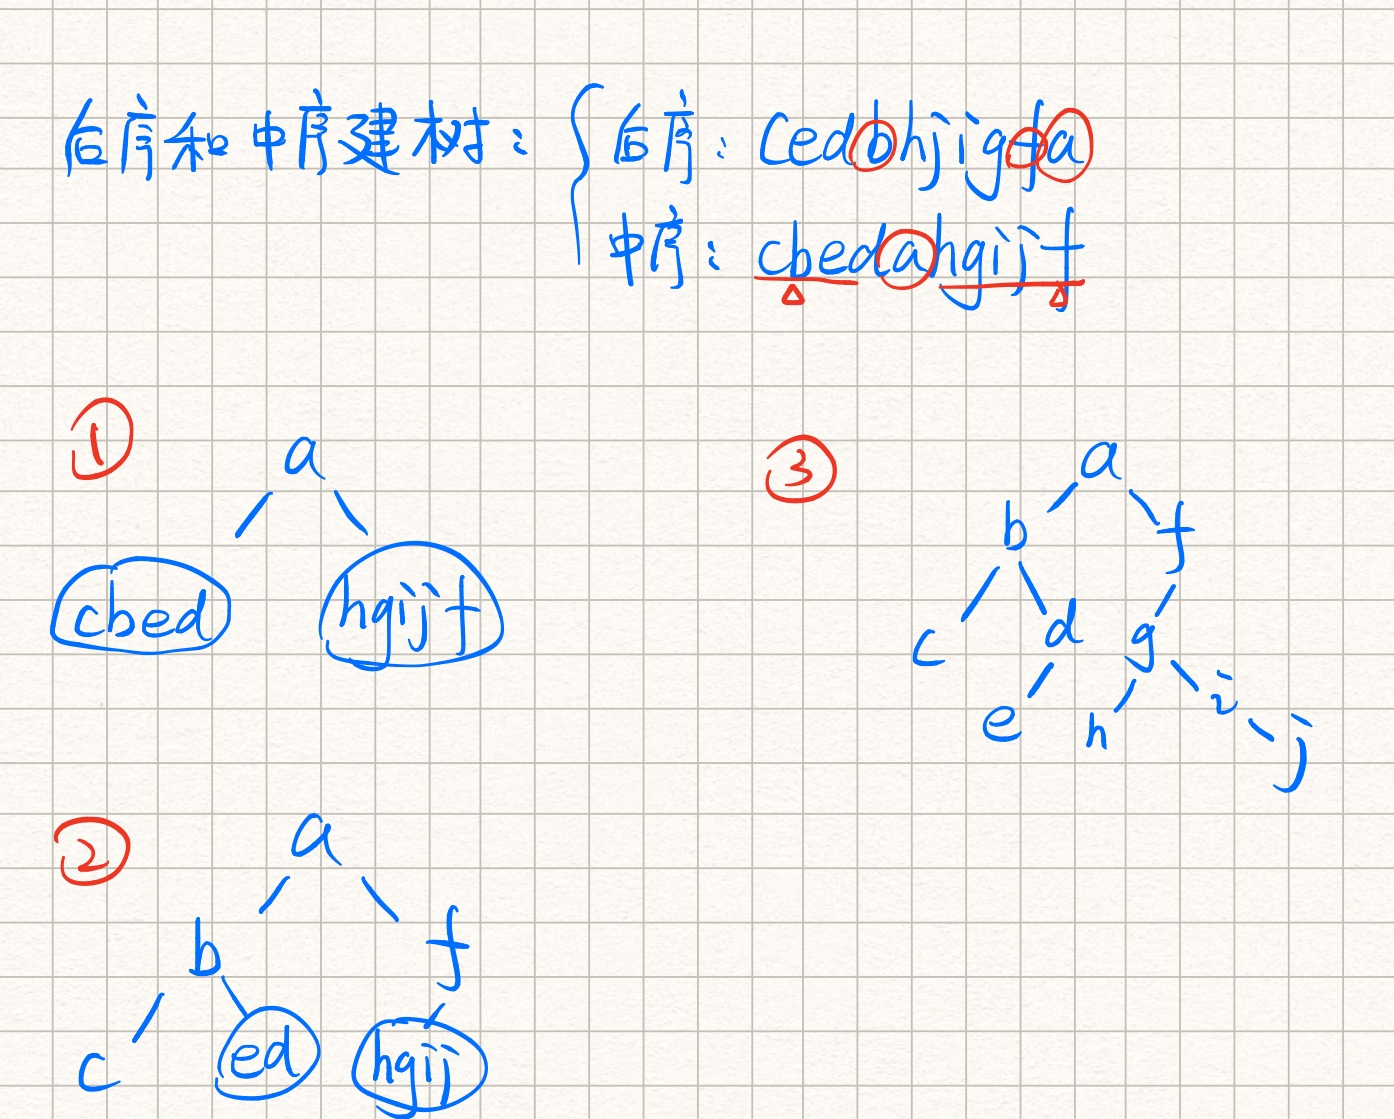 后序和中序建树：
后序：cedbhjigfa
中序：cbedahgijf
①
a
cbed hgijf
②
a
b f
c ed hgij
③
a
b f
c d g
e h i
j